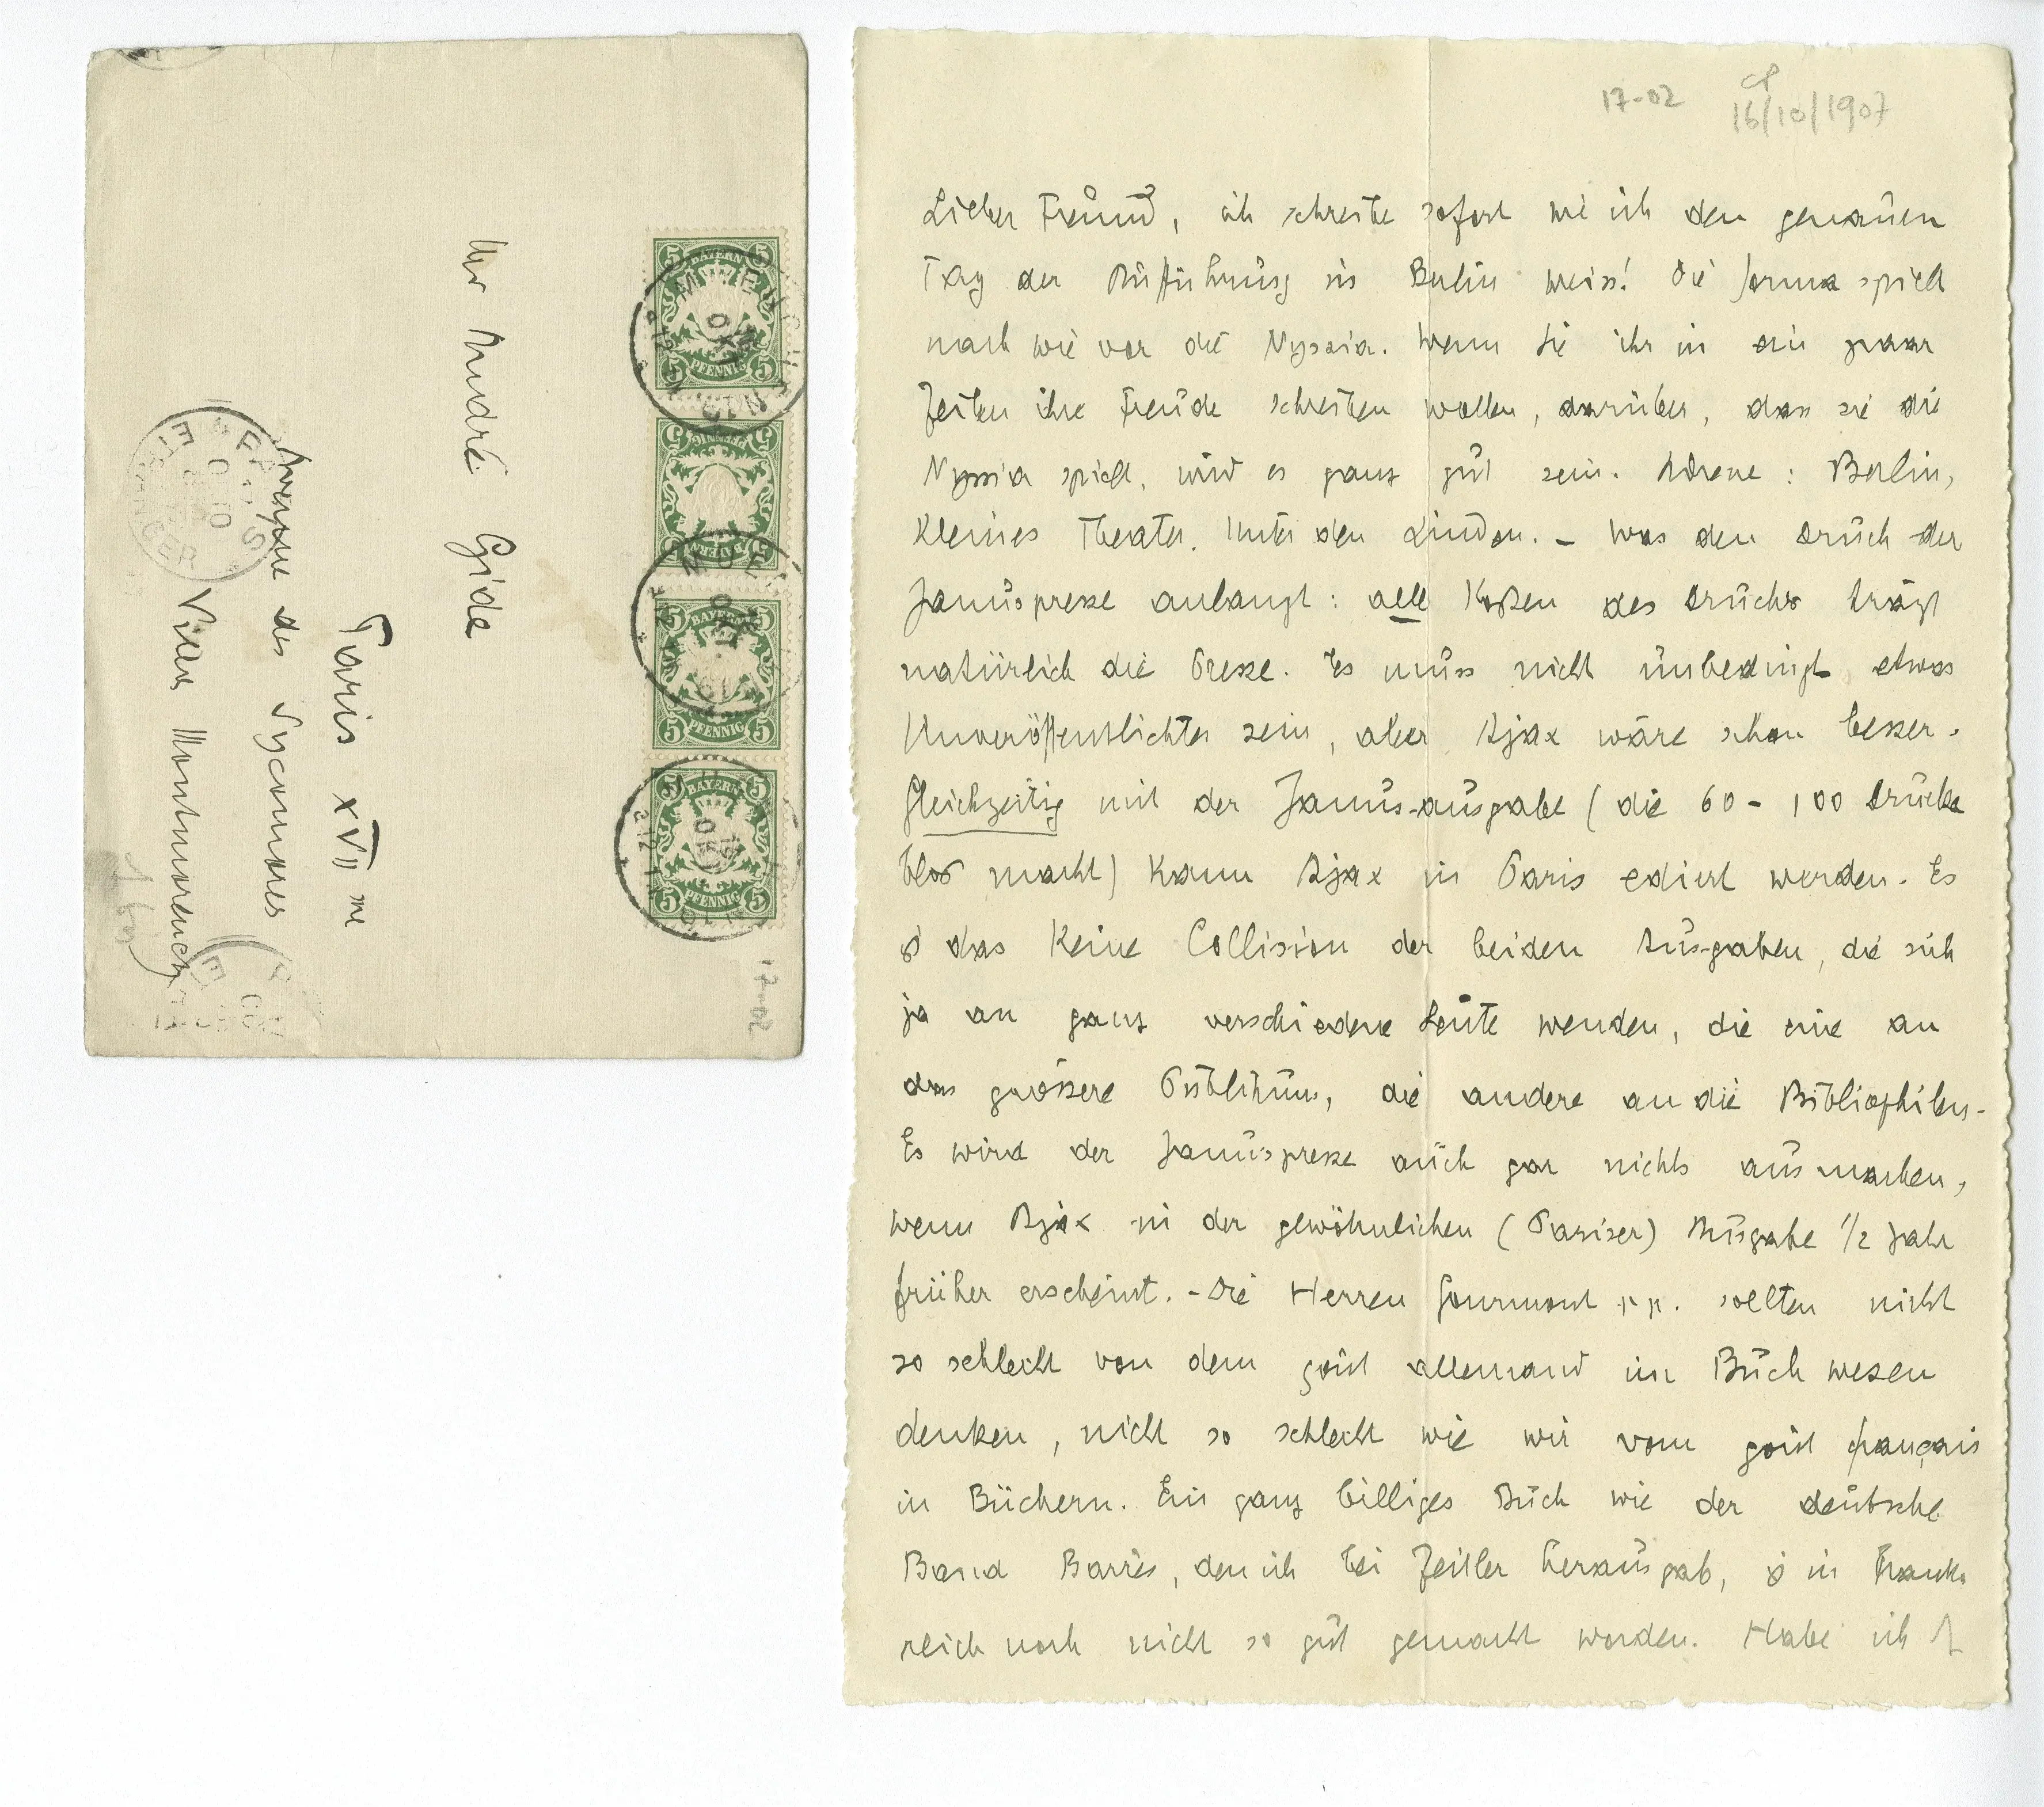 Mr André Gide
Paris XVI me
Avenue des Sycomores
Villa Montmorency
17-02
BAYERN
5 PFENNIG 5
BAYERN
5 PFENNIG 5
BAYERN
5 PFENNIG 5
BAYERN
5 PFENNIG 5
17-02
CP
16/10/1907
Lieber Freund, ich schreibe sofort wie ich den genauen
Tag der Aufführung in Berlin weiss! Die Sorma spielt
nach wie vor die Nyssia. Wenn Sie ihr in ein paar
Zeilen ihre Freude schreiben wollen, darüber, dass sie die
Nyssia spielt, wird es ganz gut sein. Adresse: Berlin,
Kleines Theater. Unter den Linden. – Was den Druck der
Januspresse anlangt: alle Kosten des Drucks trägt
natürlich die Presse. Es muss nicht unbedingt etwas
Unveröffentlichtes sein, aber Ajax wäre schon besser.
Gleichzeitig mit der Janus-ausgabe (die 60 - 100 Drucke
blos macht) kann Ajax in Paris ediert werden. Es
ist das keine Collision der beiden Ausgaben, die sich
ja an ganz verschiedene Leute wenden, die eine an
das grössere Publikum, die andere an die Bibliophilen.
Es wird der Januspresse auch gar nichts ausmachen,
wenn Ajax in der gewöhnlichen (Pariser) Ausgabe 1/2 Jahr
früher erscheint. - Die Herren Gourmont pp. sollten nicht
so schlecht von dem goût allemand im Buch wesen
denken, nicht so schlecht wie wir vom goût français
in Büchern. Ein ganz billiges Buch wie der deutsche
Band Barrès, den ich bei Zeitler herausgab, ist in Frank-
reich noch nicht so gut gemacht worden. Habe ich